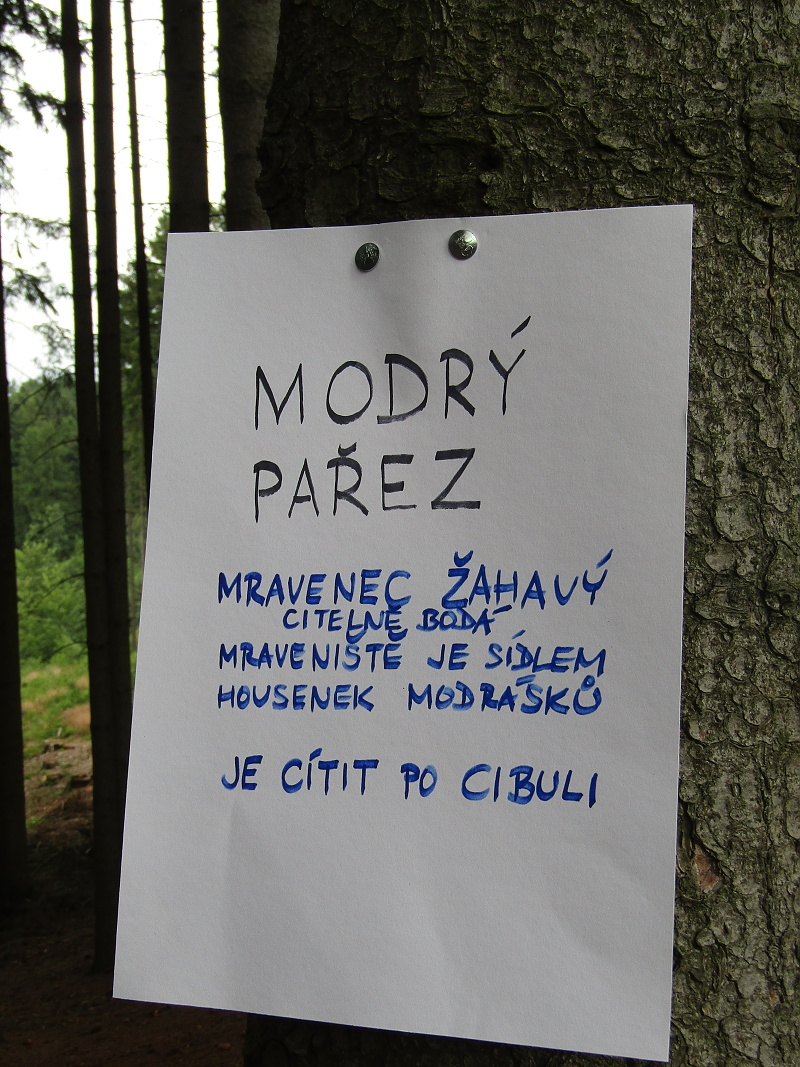 MODRÝ
PAŘEZ
MRAVENEC ŽAHAVÝ
CITELNĚ BODÁ
MRAVENIŠTĚ JE SÍDLEM
HOUSENEK MODRÁSKŮ
JE CÍTIT PO CIBULI